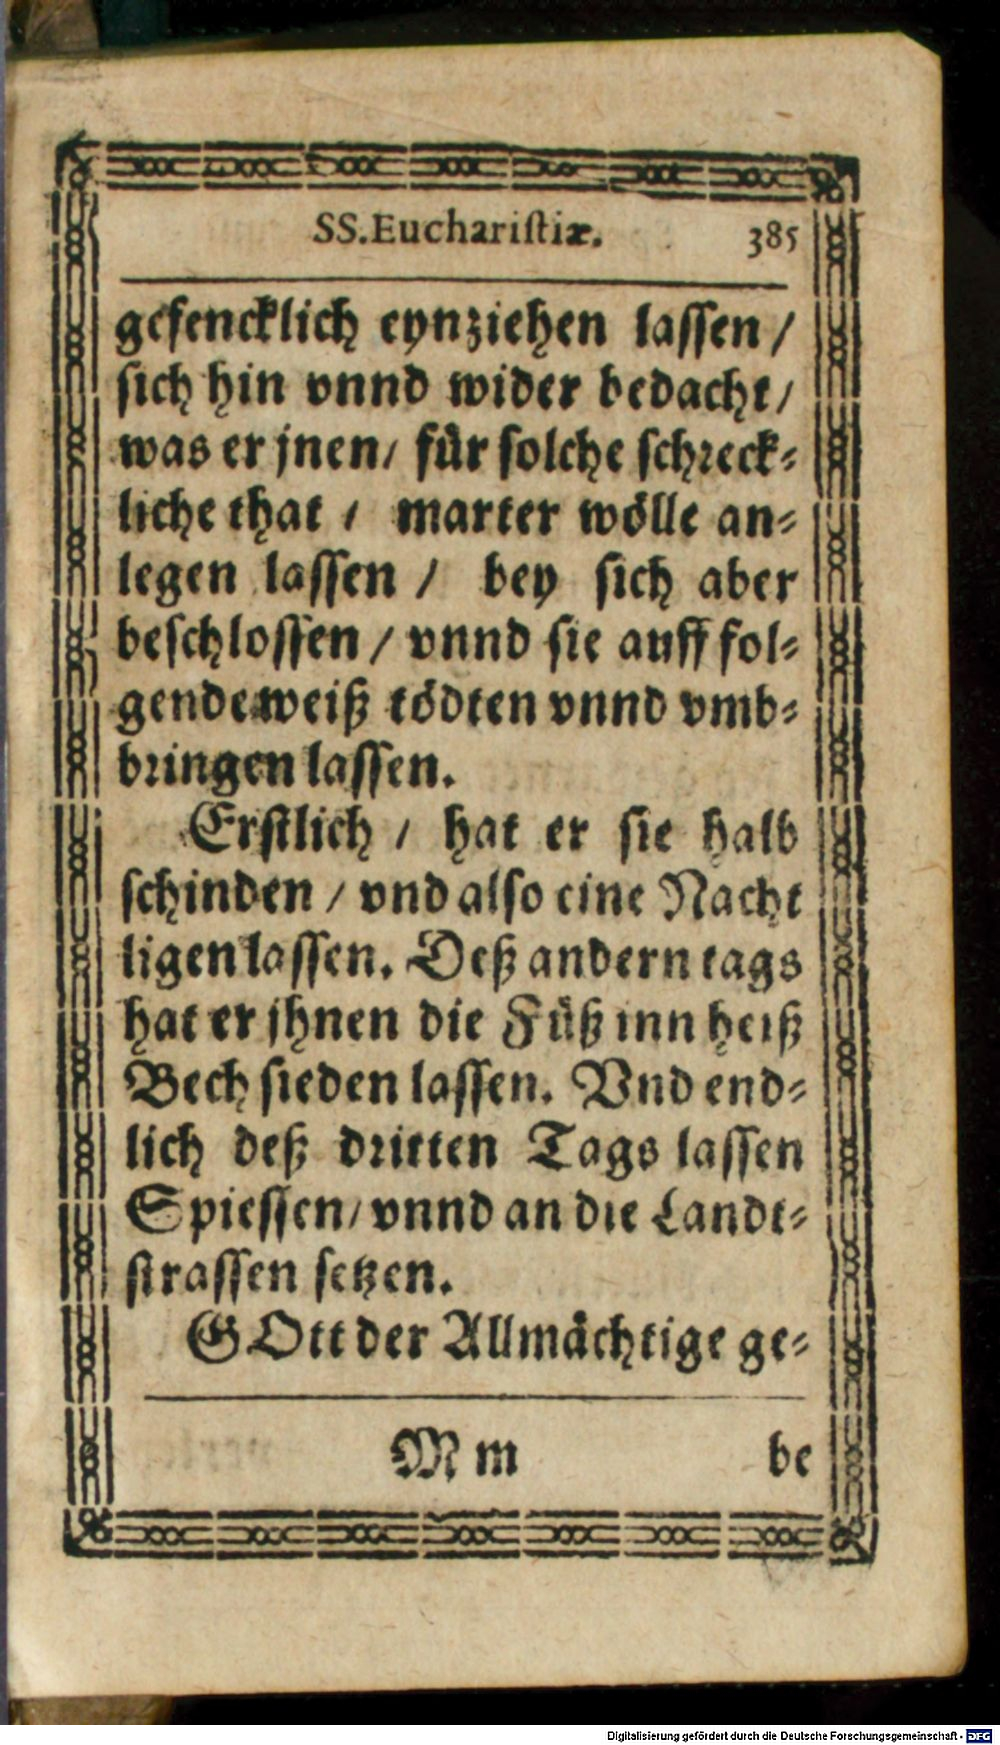 SS. Euchariſtiæ. 385
gefencklich eynziehen laſſen /
ſich hin vnnd wider bedacht /
was er jnen / für ſolche ſchreck⸗
liche that / marter wölle an⸗
legen laſſen / bey ſich aber
beſchloſſen / vnnd ſie auff fol⸗
gende weiß tödten vnnd vmb⸗
bringen laſſen.
Erſtlich / hat er ſie halb
ſchinden / vnd alſo eine Nacht
ligen laſſen. Deß andern tags
hat er jhnen die Füß inn heiß
Bech ſieden laſſen. Vnd end⸗
lich deß dritten Tags laſſen
Spieſſen / vnnd an die Landt⸗
ſtraſſen ſetzen.
GOtt der Allmächtige ge⸗
M m be
Digitalisierung gefördert durch die Deutsche Forschungsgemeinschaft - DFG